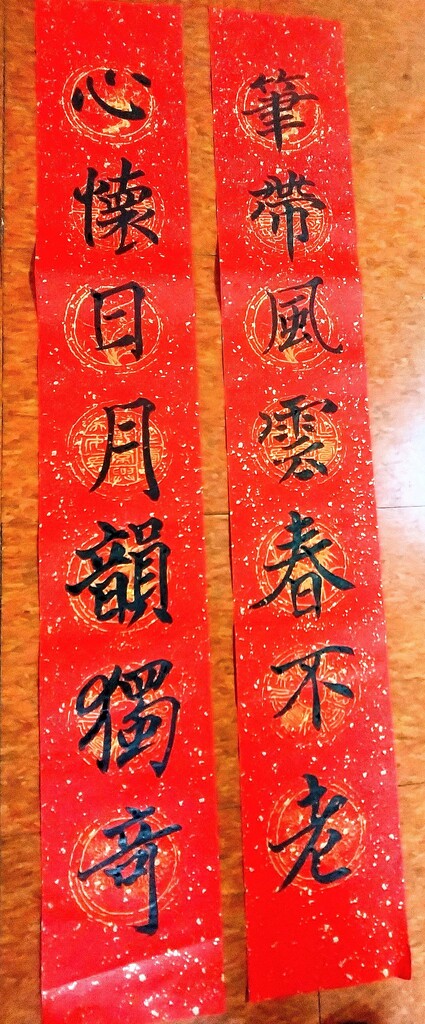 筆帶風雲春不老
心懷日月韻獨奇